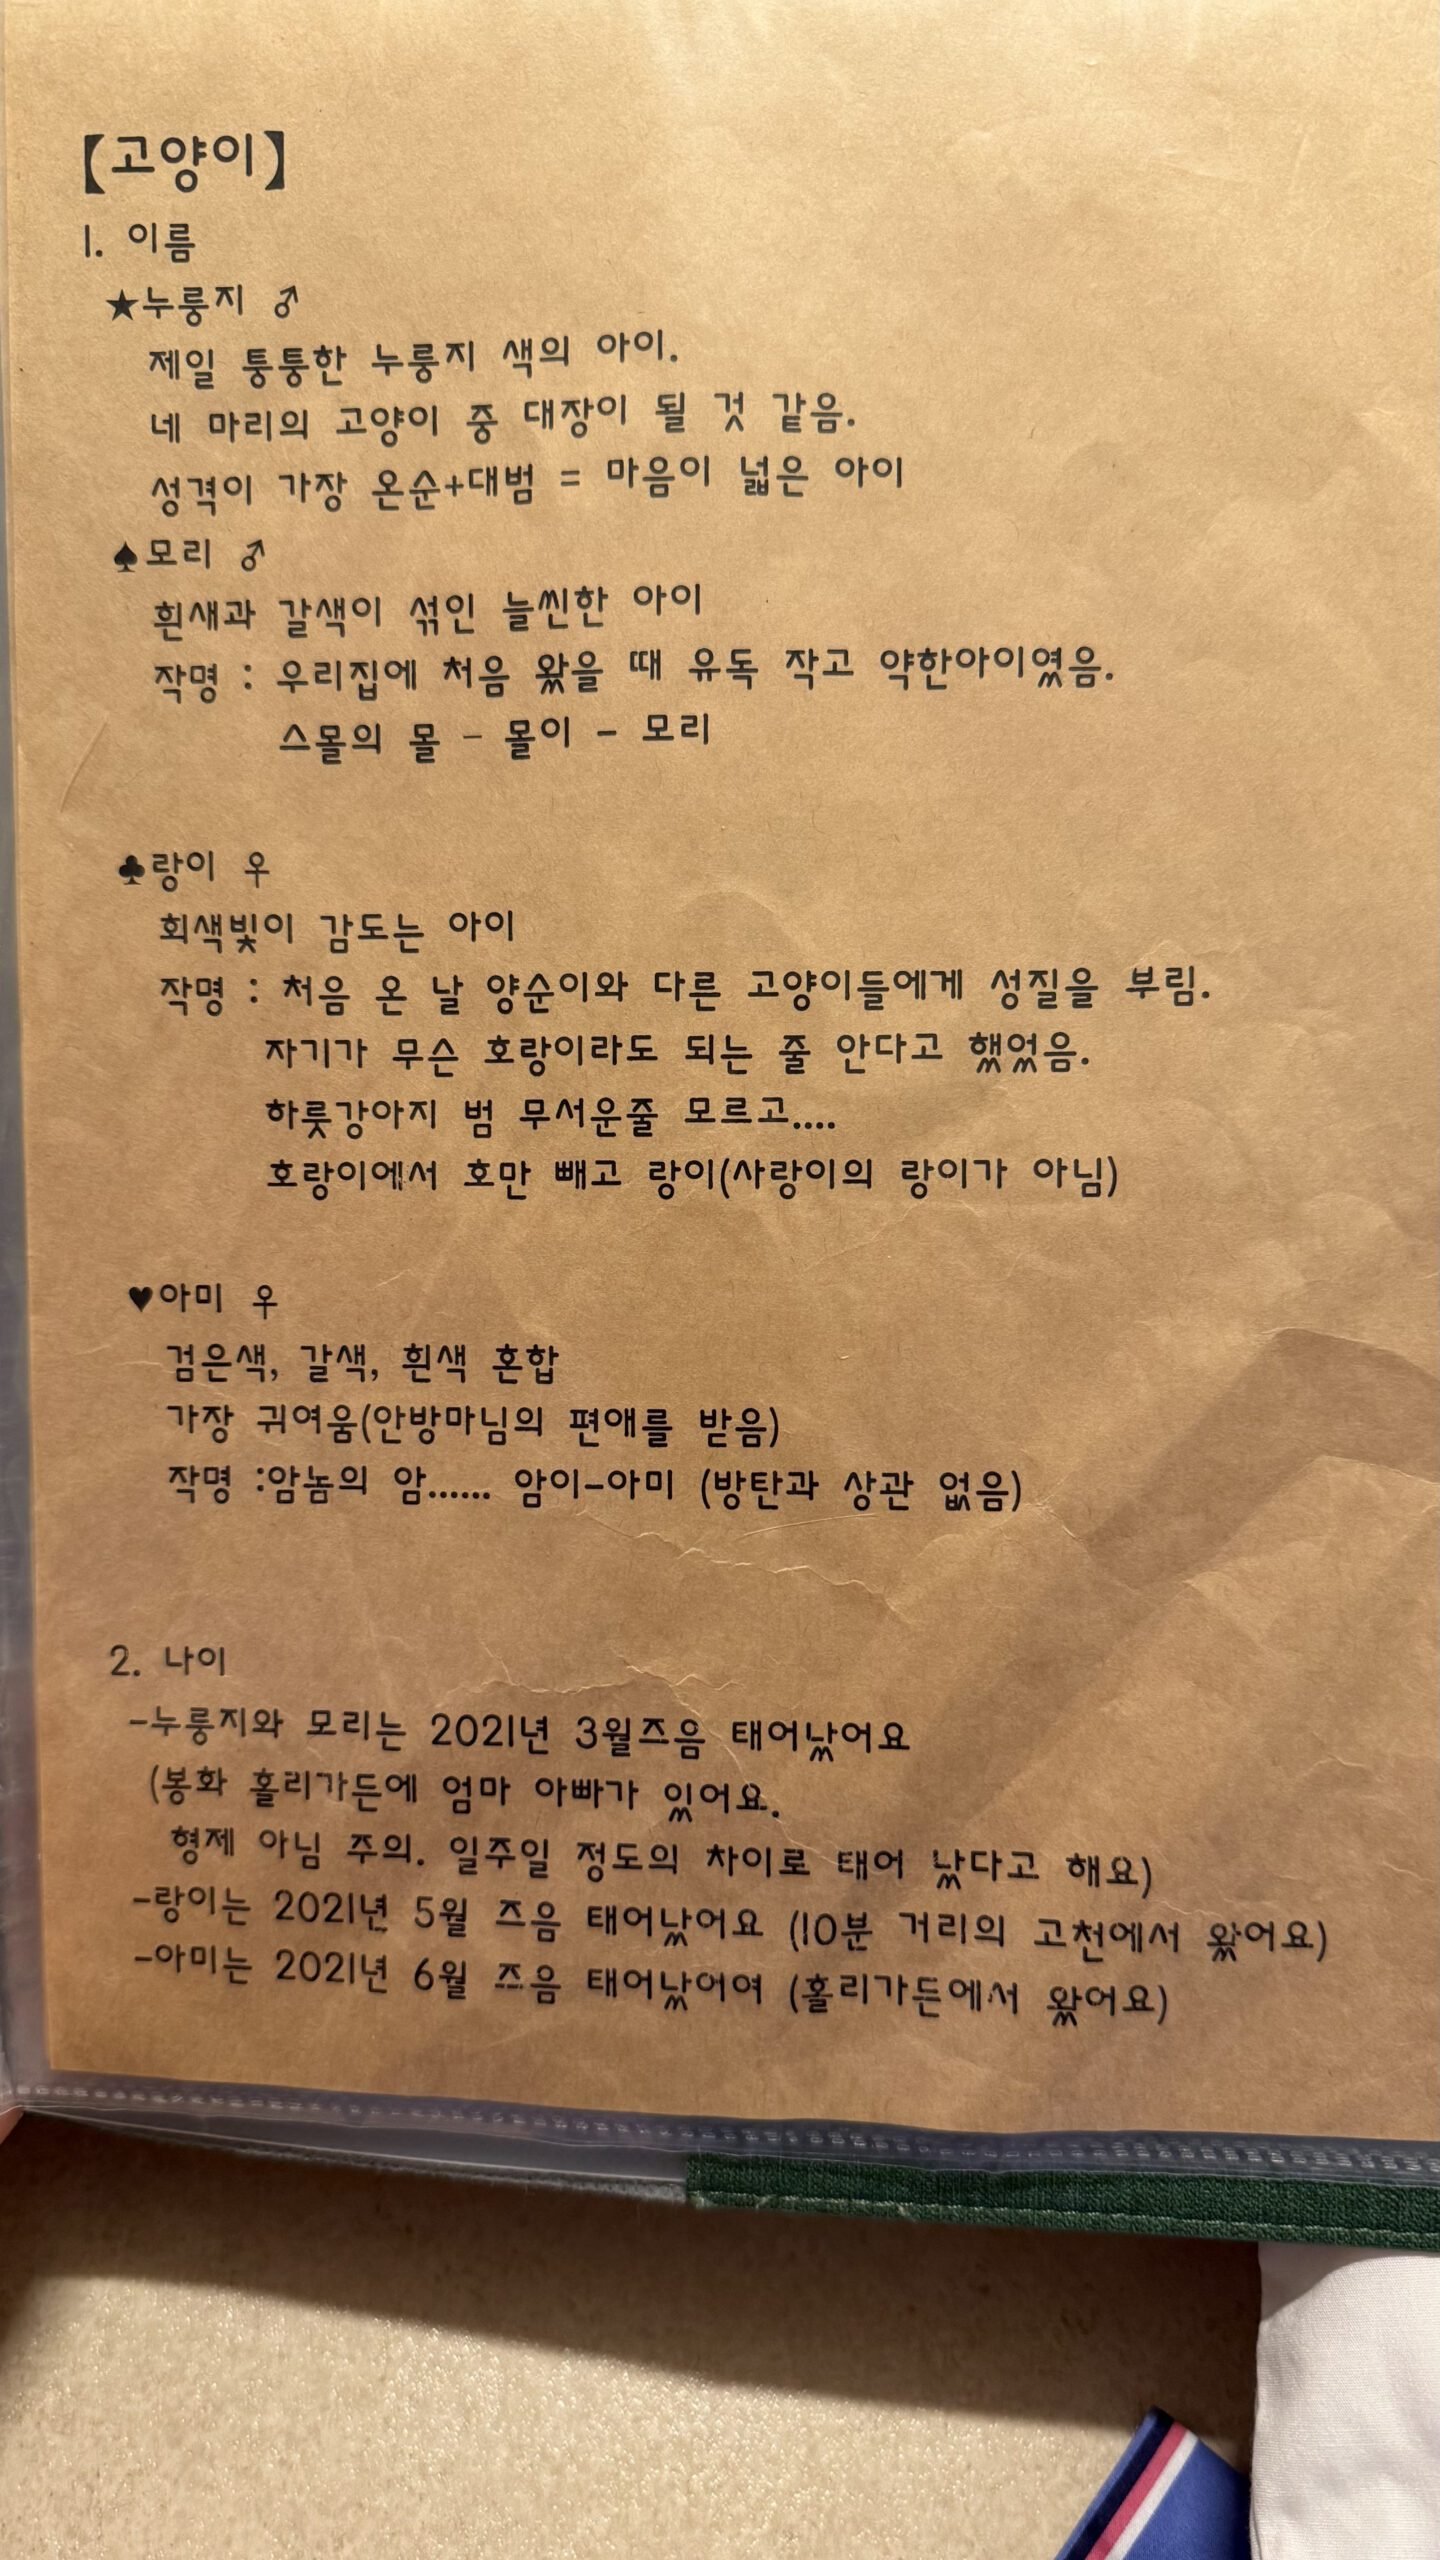 【고양이】
1. 이름
★누룽지 ♂
제일 퉁퉁한 누룽지 색의 아이.
네 마리의 고양이 중 대장이 될 것 같음.
성격이 가장 온순+대범 = 마음이 넓은 아이
♠모리 ♂
흰새과 갈색이 섞인 늘씬한 아이
작명 : 우리집에 처음 왔을 때 유독 작고 약한아이였음.
스몰의 몰 - 몰이 - 모리
♣랑이 ♀
회색빛이 감도는 아이
작명 : 처음 온 날 양순이와 다른 고양이들에게 성질을 부림.
자기가 무슨 호랑이라도 되는 줄 안다고 했었음.
하룻강아지 범 무서운줄 모르고....
호랑이에서 호만 빼고 랑이(사랑이의 랑이가 아님)
♥아미 ♀
검은색, 갈색, 흰색 혼합
가장 귀여움(안방마님의 편애를 받음)
작명 :암놈의 암...... 암이-아미 (방탄과 상관 없음)
2. 나이
-누룽지와 모리는 2021년 3월즈음 태어났어요
(봉화 홀리가든에 엄마 아빠가 있어요.
형제 아님 주의. 일주일 정도의 차이로 태어 났다고 해요)
-랑이는 2021년 5월 즈음 태어났어요 (10분 거리의 고천에서 왔어요)
-아미는 2021년 6월 쯔음 태어났어여 (홀리가든에서 왔어요)